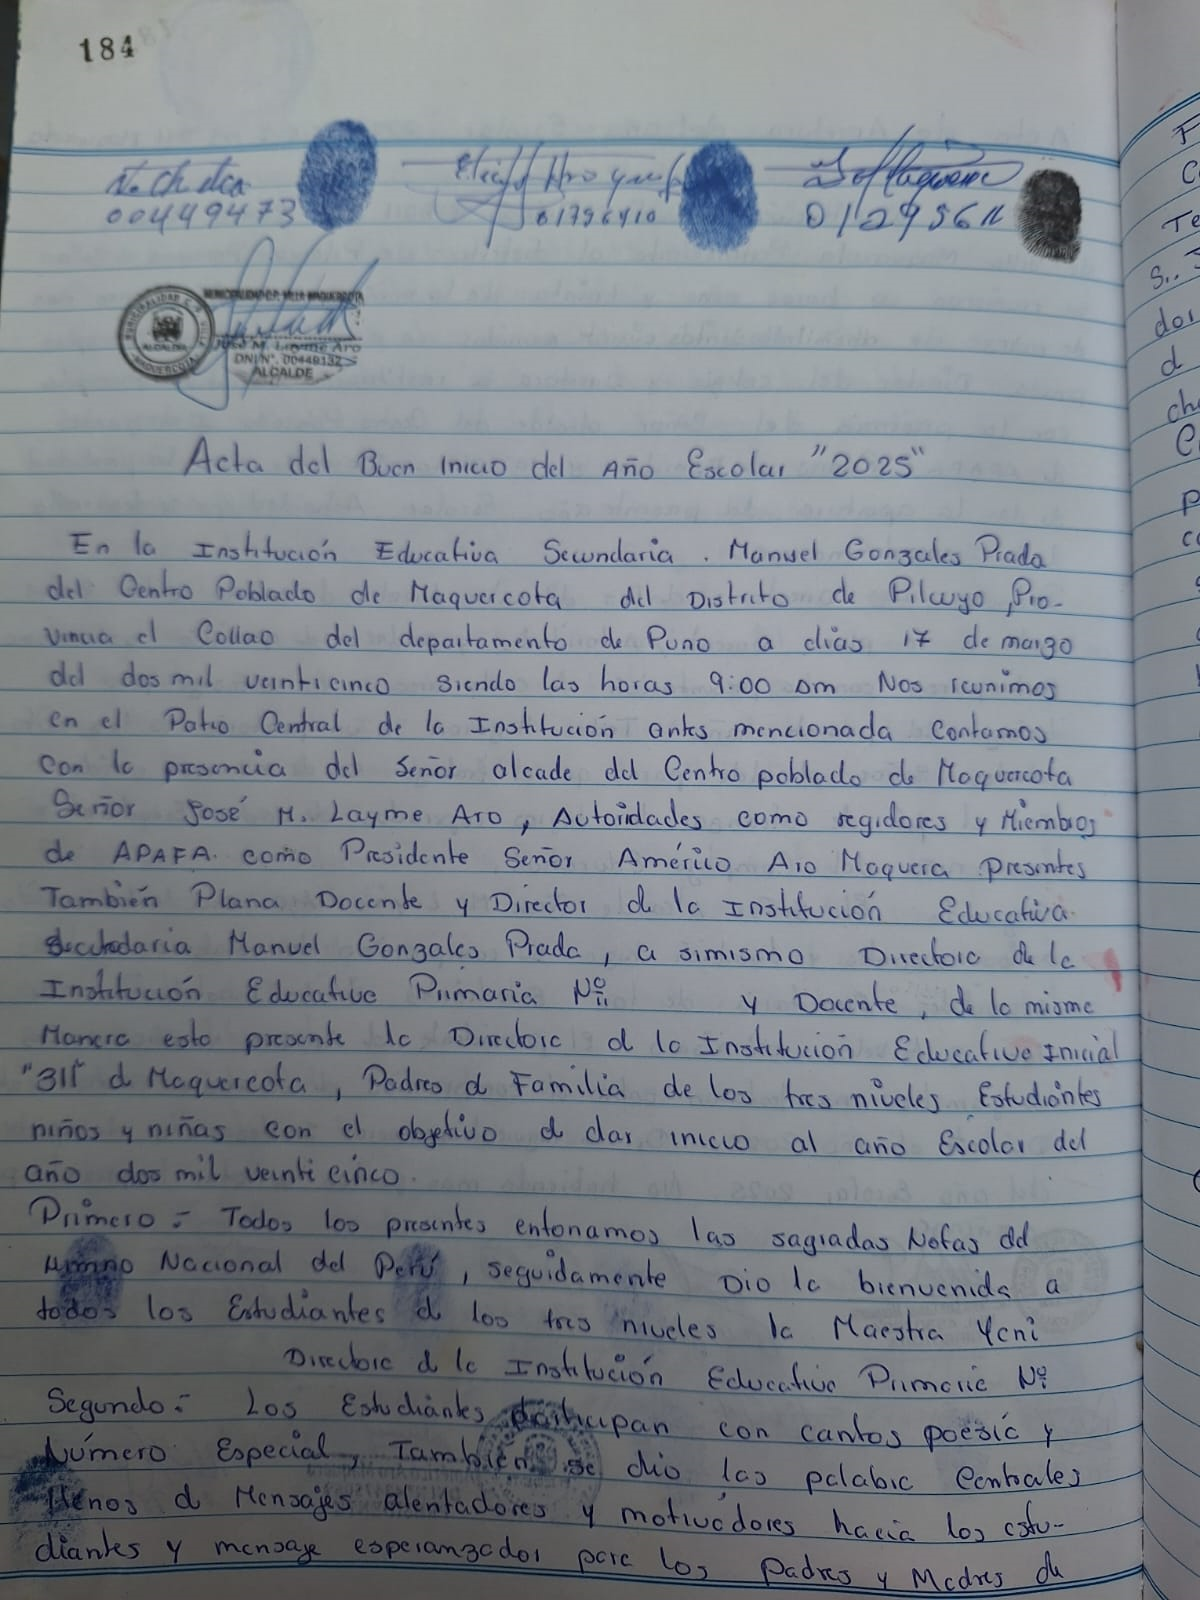 184
00449473
01796410
MUNICIPALIDAD C.P. VILLA MAQUERCOTA
ALCALDIA
José M. Layme Aro
DNI Nº. 00449132
ALCALDE
Acta del Buen Inicio del Año Escolar "2025"
En la Institución Educativa Secundaria . Manuel Gonzales Prada
del Centro Poblado de Maquercota del Distrito de Pilcuyo , Pro-
vincia el Collao del departamento de Puno a días 17 de marzo
del dos mil veinticinco siendo las horas 9:00 am Nos reunimos
en el Patio Central de la Institución antes mencionada Contamos
Con la presencia del Señor alcade del Centro poblado de Maquercota
Señor José M. Layme Aro , Autoridades como regidores y Miembros
de APAFA. como Presidente Señor Américo Aro Maquera presentes
También Plana Docente y Director d la Institución Educativa
Manuel Gonzales Prada , a simismo Directora de la
Institución Educativa Primaria Nº y Docente , de la misma
Manera esta presente la Directora d la Institución Educativa Inicial
"311" d Maquercota , Padres d Familia de los tres niveles Estudiantes
niños y niñas con el objetivo d dar inicio al año Escolar del
año dos mil veinti cinco.
Primero :- Todos los presentes entonamos las sagradas Notas del
Himno Nacional del Perú , seguidamente Dio la bienvenida a
todos los Estudiantes d los tres niveles la Maestra Yeni
Directora d la Institución Educativa Primaria Nº
Segundo :- Los Estudiantes participan con cantos poesía y
Número Especial , También se dio las palabra Centrales
llenos d Mensajes alentadores y motivadores hacia los estu-
diantes y mensaje esperanzador para los padres y Madres de